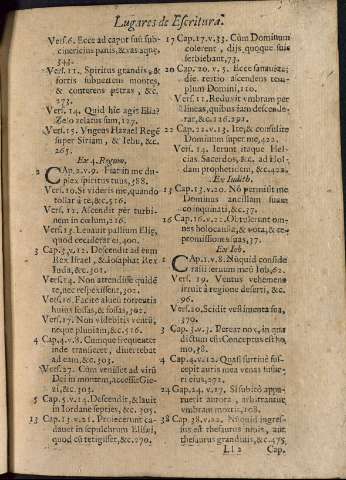 Lugares de Escritura.
Vers.6. Ecce ad caput suũ sub-
cinericius panis, & vas aque,
343.
Vers.11. Spiritus grandis, &
fortis subuertens montes,
& conterens petras, &c.
273.
Vers.14. Quid hic agis Elia?
Zelo zelatus sum, 127.
Vers.15. Vnges Hazael Regẽ
super Siriam, & Iehu, &c.
265.
Ex 4. Regum.
2 CAp.2.v.9. Fiat in me du-
plex spiritus tuus, 388.
Vers.10. Si videris me, quando
tollar à te, &c.516.
Vers.12. Ascendit per turbi-
nem in cœlum, 216.
Vers.13. Leuauit pallium Elię,
quod ceciderat ei, 400.
3 Cap.3.v.12. Descendit ad eum
Rex Israel, & Iosaphat Rex
Iuda, &c.301.
Vers.14. Non attendisse quidẽ
te, nec respexissem, 302.
Vers.16. Facite alueũ torrentis
huius fossas, & fossas, 302.
Vers.17. Non videbitis ventũ,
neque pluuiam, &c.516.
4 Cap.4.v.8. Cumque frequenter
inde transiret, diuertebat
ad eam, &c.303.
Vers.27. Cum venisset ad virũ
Dei in montem, accessit Gie-
zi, &c.303.
5 Cap.5.v.14. Descendit, & lauit
in Iordane septies, &c. 305.
13 Cap.13.v.21. Proiecerunt ca-
dauer in sepulchrum Elisei,
quod cũ tetigisset, &c.270.
17 Cap.17.v.33. Cũm Dominum
colerent, dijs quoque suis
seruiebant, 73.
20 Cap.20.v.5. Ecce sanaui te;
die tertio ascendens tem-
plum Domini, 110.
Vers.11. Reduxit vmbram per
lineas, quibus iam descende-
rat, &c.216.291.
22 Cap.22.v.13. Ite, & consulite
Dominum super me, 422.
Vers.14. Ierunt itaque Hel-
cias Sacerdos, &c. ad Hol-
dam prophetidem, &c.422.
Ex Iudith.
13 Cap.13.v.20. Nõ permisit me
Dominus ancillam suam
coinquinari, &c.37.
16 Cap.16.v.22. Obtulerunt om-
nes holocausta, & vota, & re-
promissiones suas, 37.
Ex Iob.
1 CAp.1.v.8. Nũquid conside-
rasti seruum meũ Iob, 62.
Vers.19. Ventus vehemens
irruit à regione deserti, &c.
96.
Vers.20. Scidit vestimenta sua,
370.
3 Cap.3.v.3. Pereat nox, in qua
dictum est: Conceptus est ho-
mo, 38.
4 Cap.4.v.12. Quasi furtiuè sus-
cepit auris mea venas susur-
ri eius, 271.
24 Cap.24.v.17. Si subitò appa-
ruerit aurora, arbitrantur
vmbram mortis, 108.
38 Cap.38.v.22. Nũquid ingres-
sus est thesauros niuis, aut
thesauros grandinis, &c.475.
Ll 2 Cap.